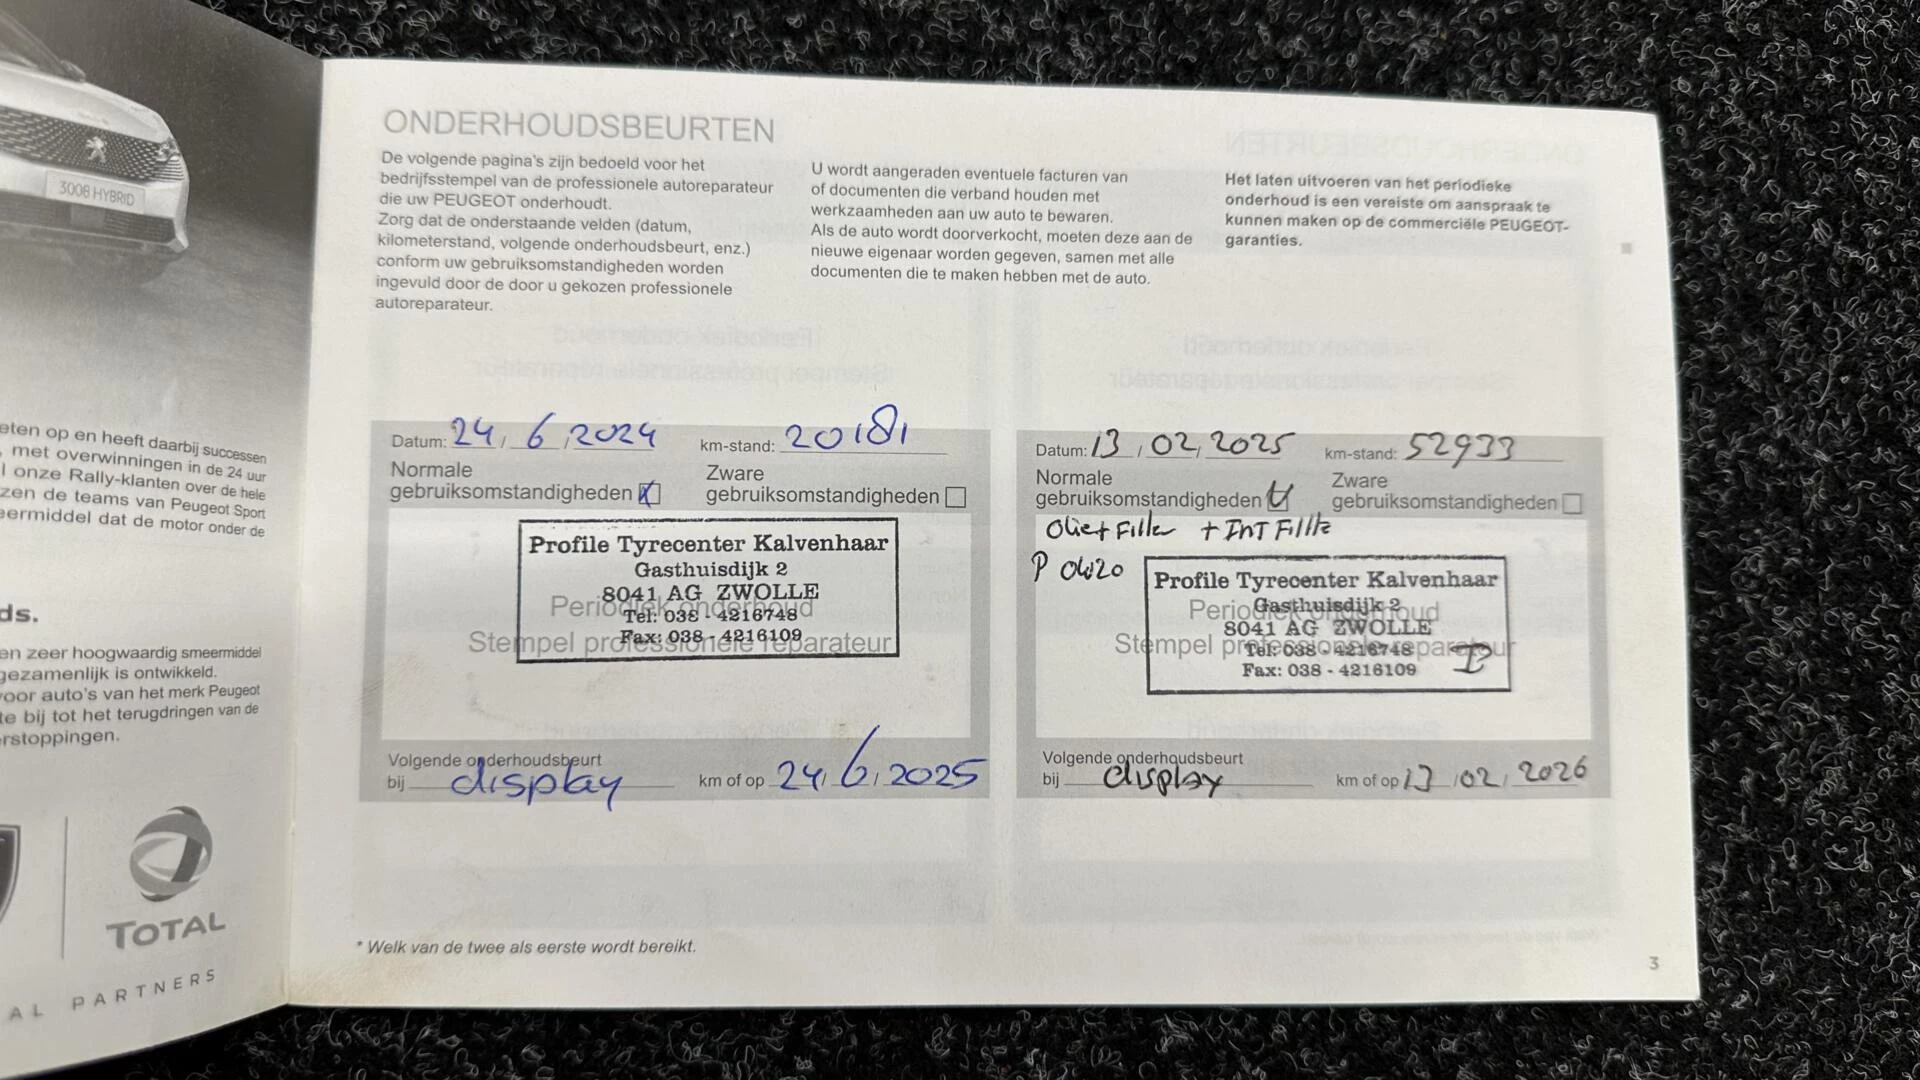 3008 HYBRID
eten op en heeft daarbij successen
met overwinningen in de 24 uur
l onze Rally-klanten over de hele
zen de teams van Peugeot Sport
eermiddel dat de motor onder de
ds.
en zeer hoogwaardig smeermiddel
gezamenlijk is ontwikkeld.
voor auto's van het merk Peugeot
te bij tot het terugdringen van de
rstoppingen.
TOTAL
AL PARTNERS
ONDERHOUDSBEURTEN
De volgende pagina's zijn bedoeld voor het
bedrijfsstempel van de professionele autoreparateur
die uw PEUGEOT onderhoudt.
Zorg dat de onderstaande velden (datum,
kilometerstand, volgende onderhoudsbeurt, enz.)
conform uw gebruiksomstandigheden worden
ingevuld door de door u gekozen professionele
autoreparateur.
U wordt aangeraden eventuele facturen van
of documenten die verband houden met
werkzaamheden aan uw auto te bewaren.
Als de auto wordt doorverkocht, moeten deze aan de
nieuwe eigenaar worden gegeven, samen met alle
documenten die te maken hebben met de auto.
Het laten uitvoeren van het periodieke
onderhoud is een vereiste om aanspraak te
kunnen maken op de commerciële PEUGEOT-
garanties.
Datum: 24 / 6 / 2024 km-stand: 20181
Normale
gebruiksomstandigheden
Zware
gebruiksomstandigheden
Profile Tyrecenter Kalvenhaar
Gasthuisdijk 2
8041 AG ZWOLLE
Periodiek onderhoud
Tel: 038 - 4216748
Stempel professionele reparateur
Fax: 038 - 4216109
Volgende onderhoudsbeurt
bij display km of op 24 / 6 / 2025
Datum: 13 / 02 / 2025 km-stand: 52933
Normale
gebruiksomstandigheden
Zware
gebruiksomstandigheden
Profile Tyrecenter Kalvenhaar
Gasthuisdijk 2
Periodiek onderhoud
8041 AG ZWOLLE
Stempel professionele reparateur
Tel: 038 - 4216748
Fax: 038 - 4216109
Volgende onderhoudsbeurt
bij display km of op 13 / 02 / 2026
* Welk van de twee als eerste wordt bereikt.
3